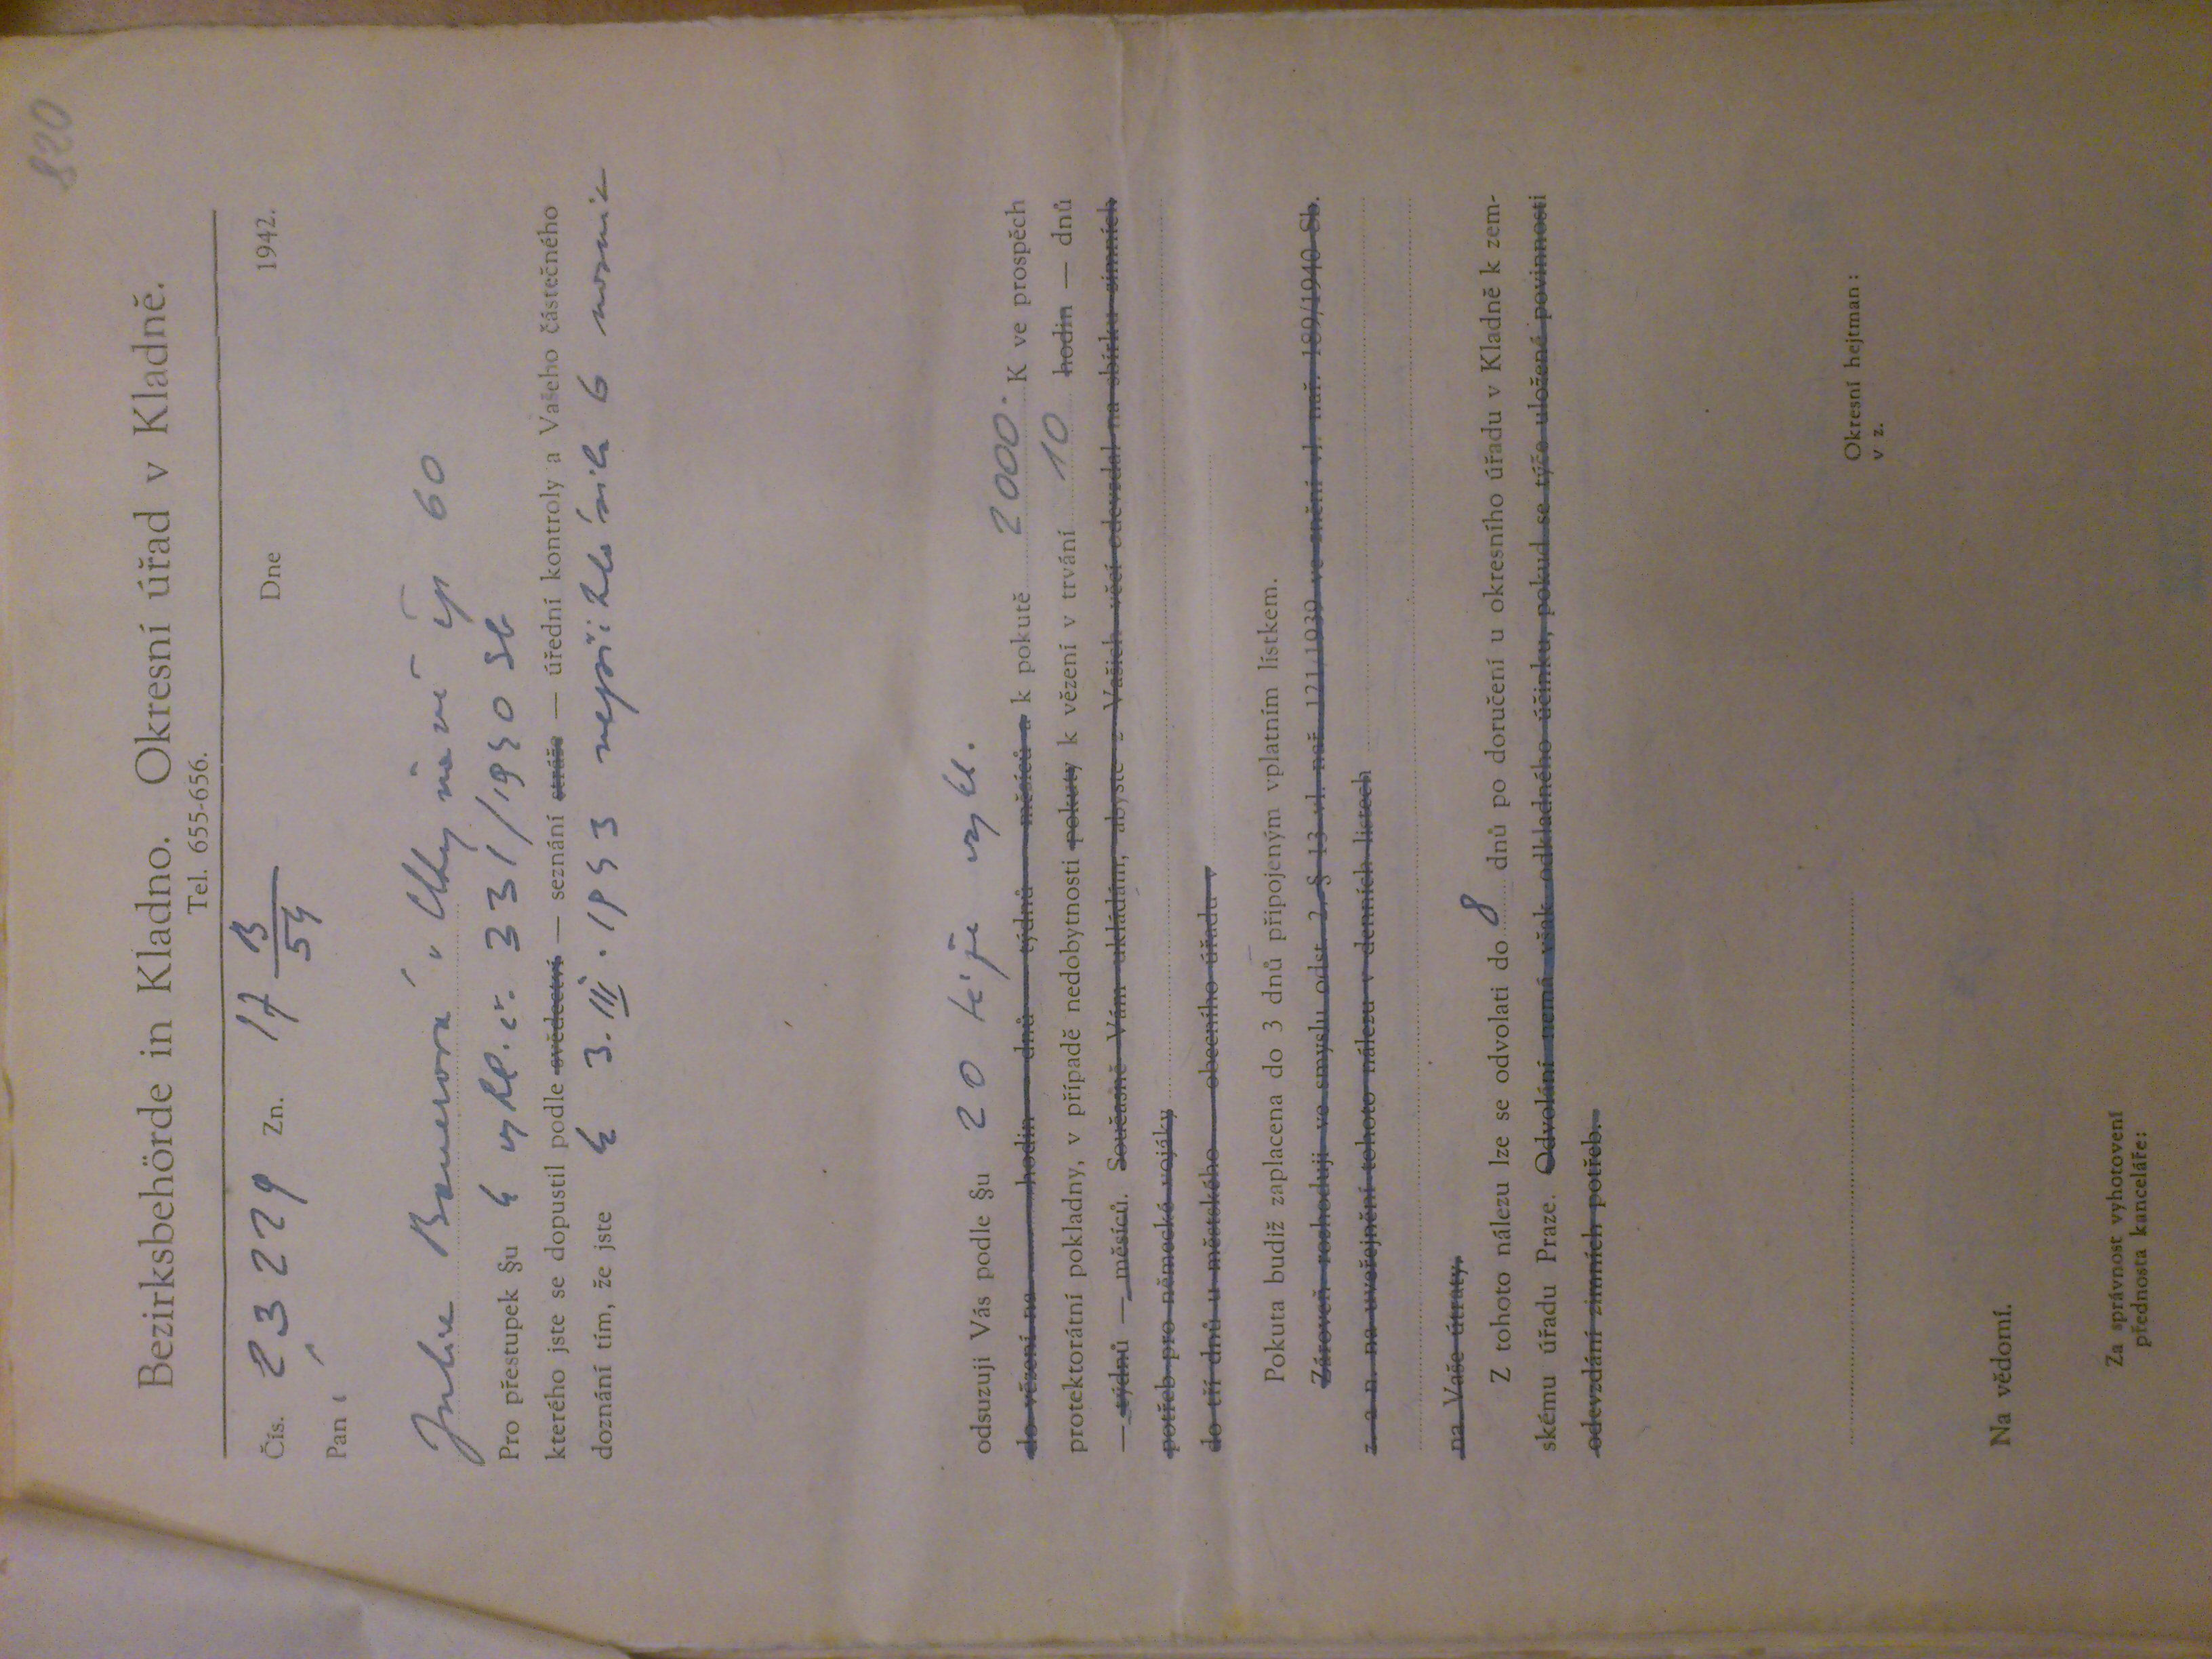 820
Bezirksbehörde in Kladno. Okresní úřad v Kladně.
Tel. 655-656.
Čís. 23229 Zn. 17 B/54 Dne 1942.
Paní
Julie Bauerová v čp 60
Pro přestupek §u 4 vyhl. č. 331/1940 Sb
kterého jste se dopustil podle svědectví — seznání stráže — úřední kontroly a Vašeho částečného
doznání tím, že jste k 3. III. 1943 nepřihlásila 6 nosnic
odsuzuji Vás podle §u 20 téže vyhl.
do vězení na hodin — dnů — týdnů — měsíců a k pokutě 2000·- K ve prospěch
protektorátní pokladny, v případě nedobytnosti pokuty k vězení v trvání 10 hodin — dnů
— týdnů — měsíců. Současně Vám ukládám, abyste z Vašich věcí odevzdal na sbírku zimních
potřeb pro německé vojáky
do tří dnů u městského — obecního úřadu v
Pokuta budiž zaplacena do 3 dnů připojeným vplatním lístkem.
Zároveň rozhoduji ve smyslu odst. 2. § 13 vl. nař. 121/1939 ve znění vl. nař. 189/1940 Sb.
z. a n. na uveřejnění tohoto nálezu v denních listech
na Vaše útraty.
Z tohoto nálezu lze se odvolati do 8 dnů po doručení u okresního úřadu v Kladně k zem-
skému úřadu Praze. Odvolání nemá však odkladného účinku, pokud se týče uložené povinnosti
odevzdání zimních potřeb.
Okresní hejtman :
v z.
Na vědomí.
Za správnost vyhotovení
přednosta kanceláře: